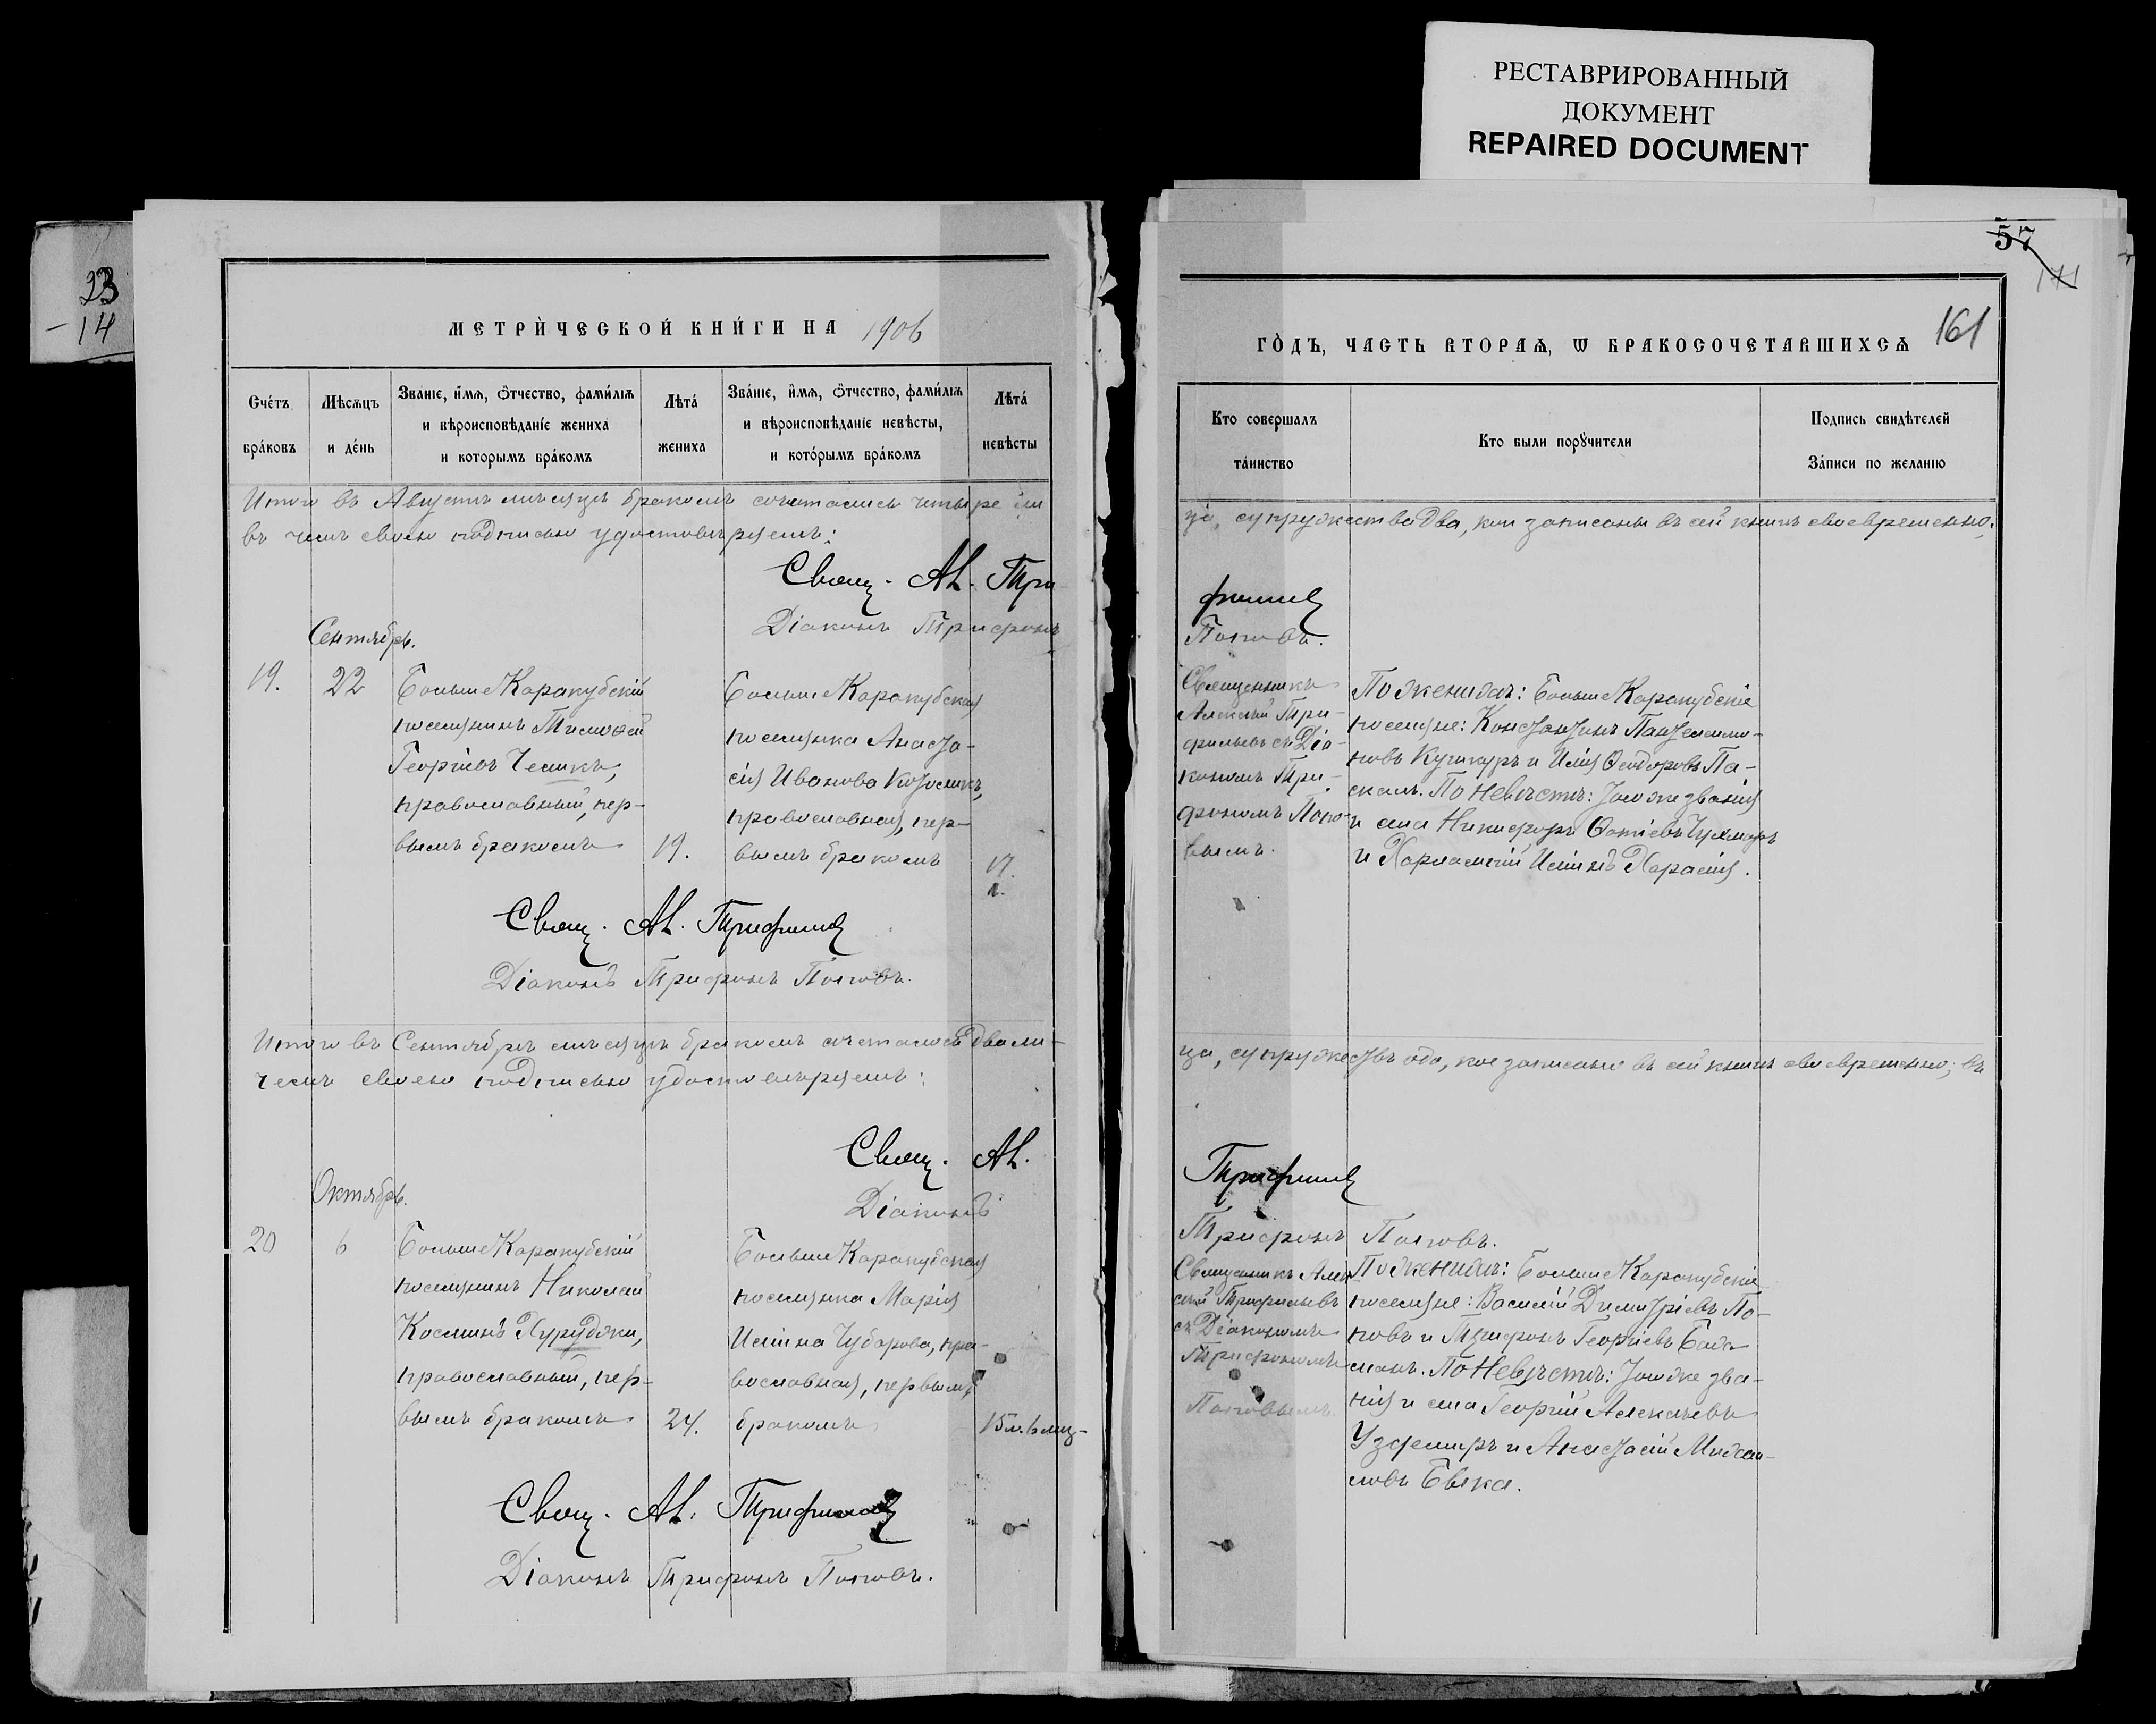 РЕСТАВРИРОВАННЫЙ
ДОКУМЕНТ
REPAIRED DOCUMENT
23
- 14
МЕТРИ́ЧЕСКОЙ КНИ́ГИ НА 1906
Сче́тъ бра́ковъ
Мѣсѧцъ и де́нь
Званіе, и́мѧ, ѻ҆́тчество, фами́лїѧ
и вѣроисповѣданїе жениха
и которымъ бра́комъ
Лѣта́ жениха
Зва́нїе, и́мѧ, ѻ҆́тчество, фами́лїѧ
и вѣроисповѣданїе невѣсты,
и кото́рымъ бра́комъ
Лѣта́ невѣсты
Итого въ Августѣ мѣсяцѣ бракомъ сочетались четыре ли
въ чемъ своею подписью удостовѣряемъ:
Свящ. Ал. Три
Діаконъ Трифонъ
Сентябрь.
19.
22
Больше Каракубскій
поселянинъ Тимофей
Георгіевъ Челикъ,
православный, пер-
вымъ бракомъ
19.
Больше Каракубская
поселянка Анаста-
сія Иванова
православная, пер-
вымъ бракомъ
17.
Свящ. Ал. Трифильевъ
Діаконъ Трифонъ Поповъ.
Итого въ Сентябрѣ мѣсяцѣ бракомъ сочетались два ли-
чемъ своею подписью удостовѣряемъ:
Свящ. Ал.
Діаконъ
Октябрь.
20
6
Больше Каракубскій
поселянинъ Николай
Косминъ Хуруджи,
православный, пер-
вымъ бракомъ
24.
Больше Каракубская
поселянка Марія
Ильина Чубарова, пра-
вославная, первымъ
бракомъ
15 л. 6 мѣс-
Свящ. Ал. Трифильевъ
Діаконъ Трифонъ Поповъ.
57
141
161
ГО́ДЪ, ЧАСТЬ ВТОРАѦ, Ѡ БРАКОСОЧЕТАВШИХСѦ
Кто совершалъ та́инство
Кто были порꙋ́чители
Подпись свидѣтелей
За́писи по желанїю
ца, супружества два, кои записаны въ сей книгѣ своевременно;
фильевъ
Поповъ.
Священникъ
Алексѣй Три-
фильевъ съ Діа-
кономъ Три-
фономъ Попо-
вымъ.
По женихѣ: Больше Каракубскіе
поселяне: Константинъ Пантелеимо-
новъ Кушкуръ и Илія Ѳеодоровъ Па-
скалъ. По Невѣстѣ: Того же званія
и села Никифоръ Ѳотіевъ
и Харлампій Ильинъ Харалія.
ца, супружествъ одо, кое записано въ сей книгѣ своевременно; въ
Трифильевъ
Трифонъ Поповъ.
Священникъ Алек
сѣй Трифильевъ
съ Діакономъ
Трифономъ
Поповымъ.
По женихѣ: Больше Каракубскіе
поселяне: Василій Димитріевъ По-
повъ и Трифонъ Георгіевъ
По Невѣстѣ: Того же зва-
нія и села Георгій Алексѣевъ
и Анастасій Михаи-
ловъ